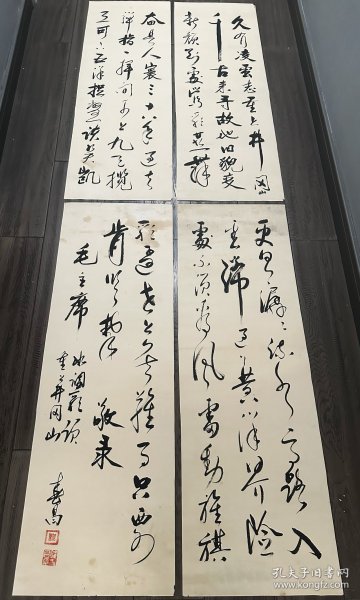 久有凌云志重上井冈山
千里来寻故地旧貌变
新颜到处莺歌燕舞
更有潺潺流水高路入
云端过了黄洋界险
处不须看风雷动旌旗
奋是人寰三十八年过去
弹指一挥间可上九天揽
月可下五洋捉鳖谈笑凯
歌还世上无难事只要
肯登攀 敬录
毛主席 水调歌头
重上井冈山
孔夫子旧书网